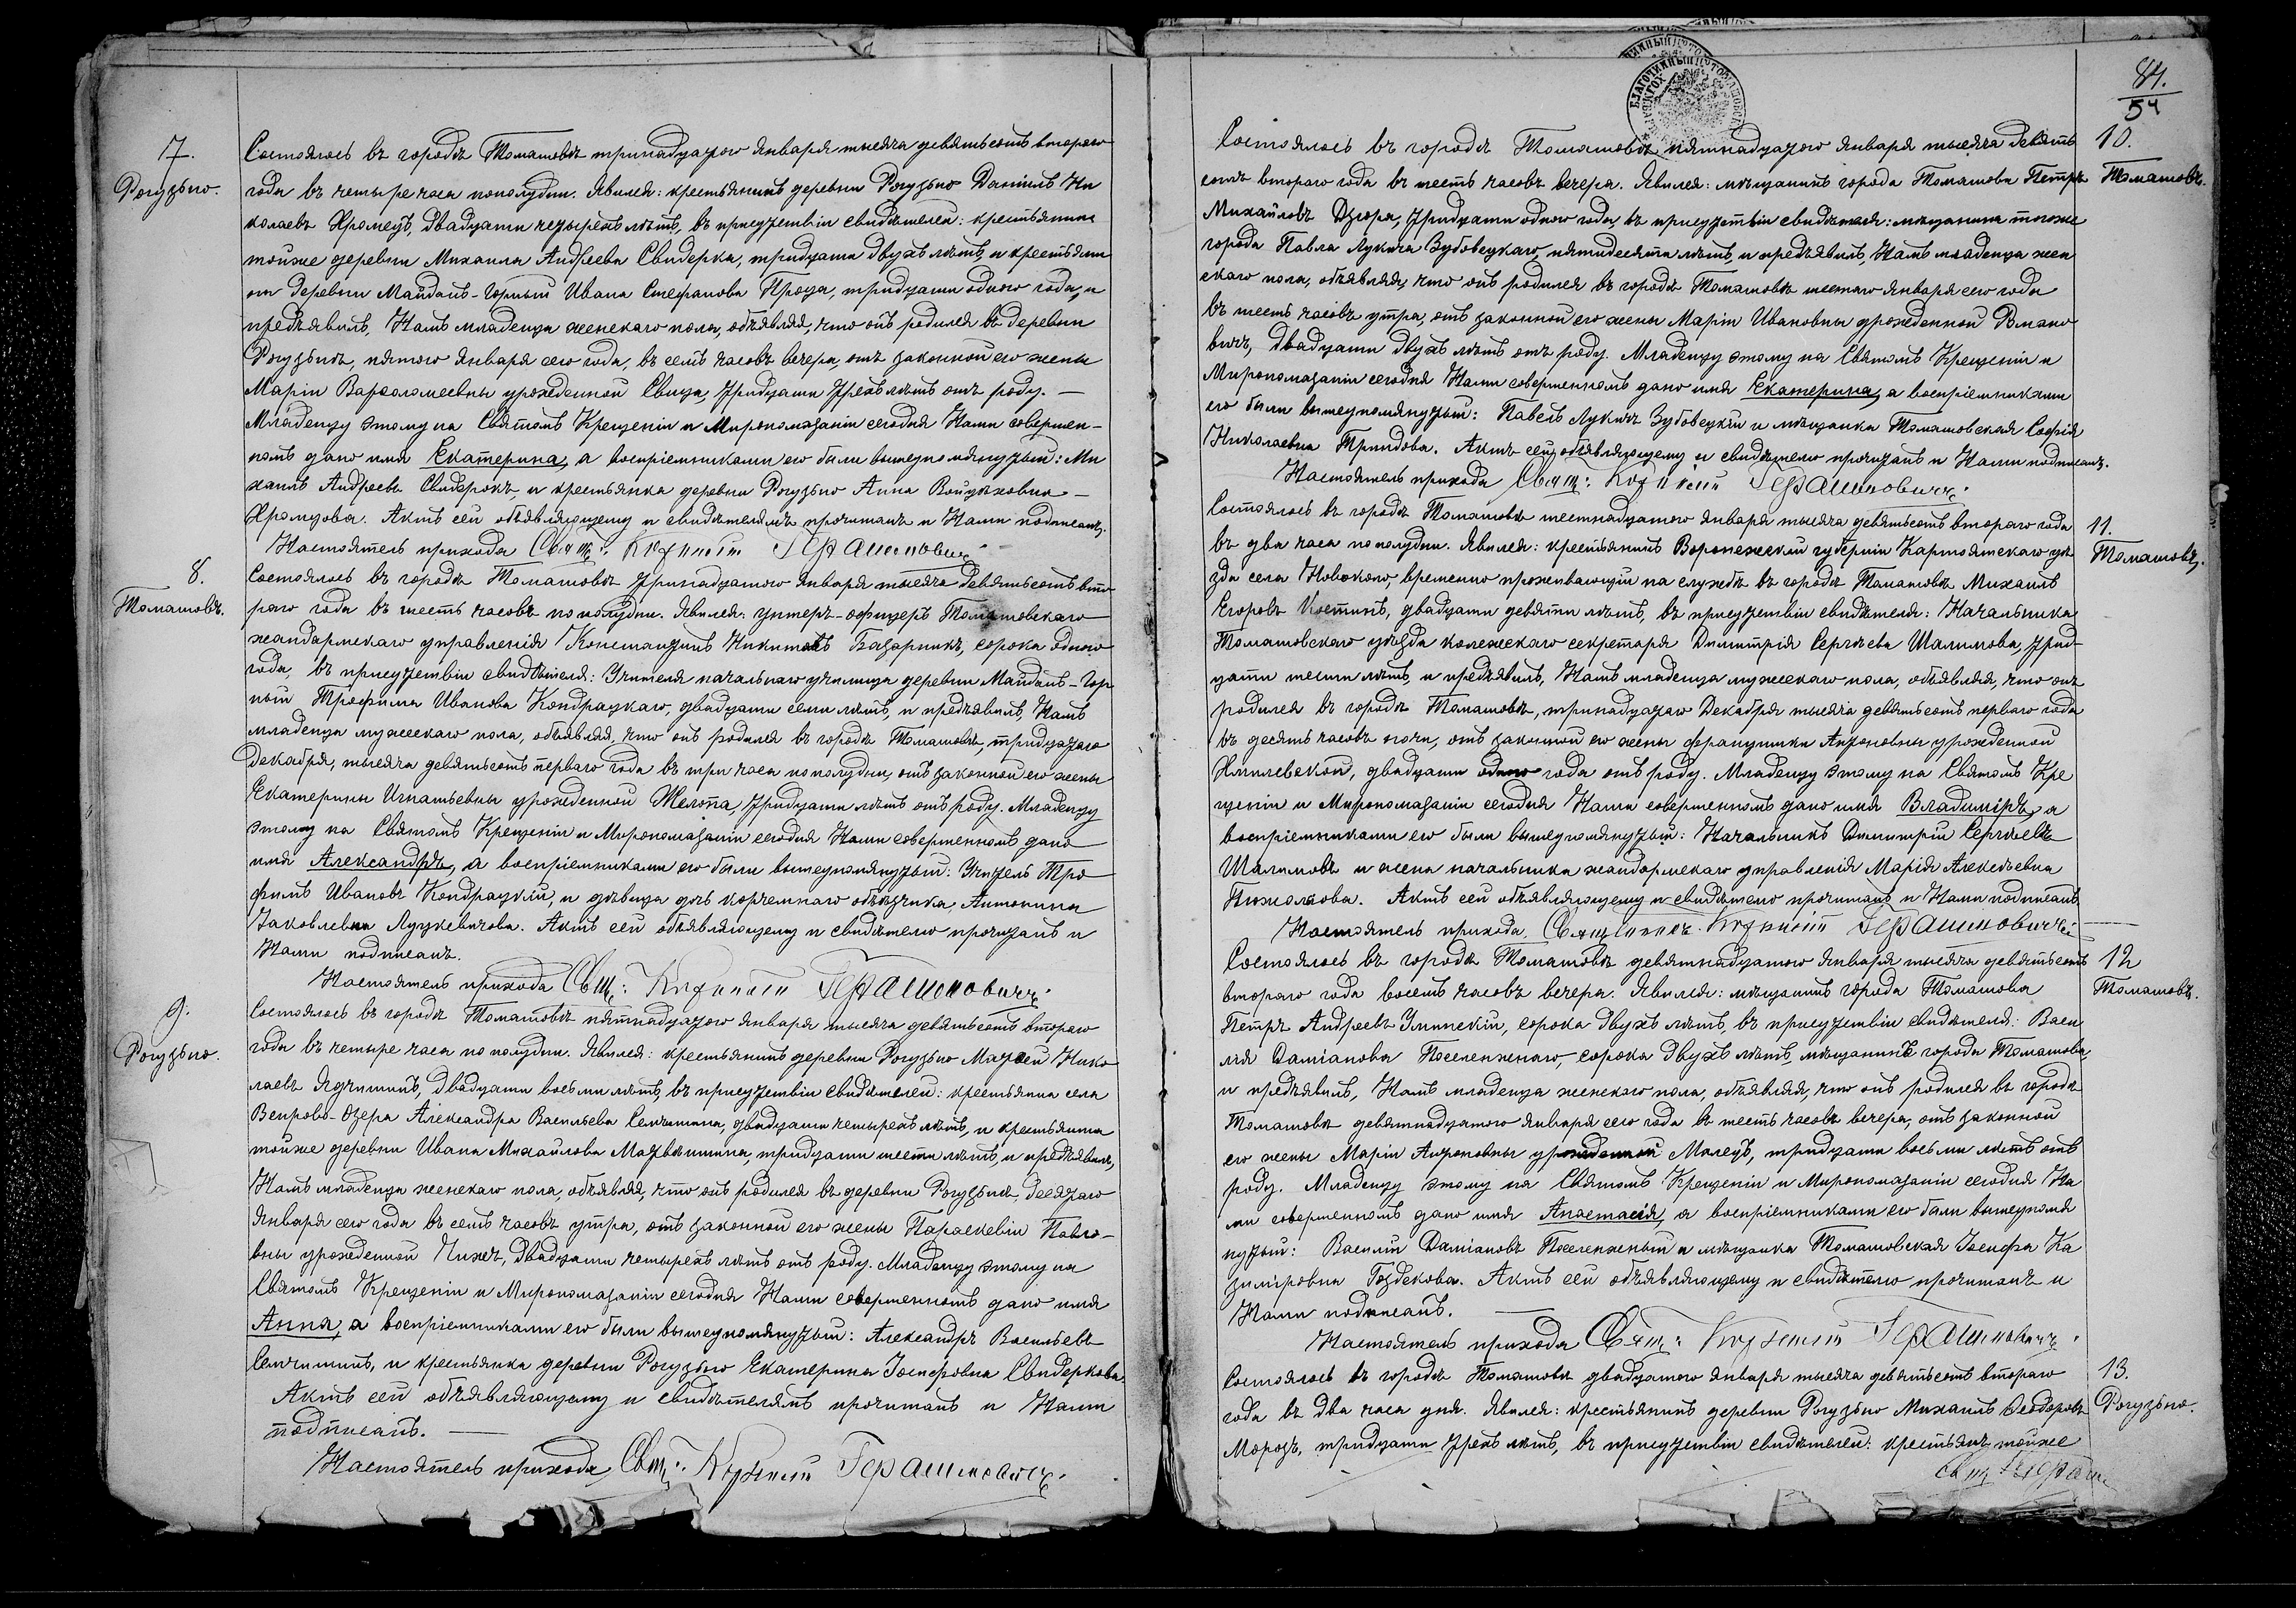 7.
Рогузьно.
Состоялось въ городѣ Томашовѣ тринадцатого Января тысяча девятьсотъ второго
года въ четыре часа пополудни. Явился: крестьянинъ деревни Рогузьно Даніилъ Ни
колаевъ Хромецъ, двадцати четырехъ лѣтъ, въ присутствіи свидѣтелей: крестьянина
тойже деревни Михаила Андреева Свидерка, тридцати двухъ лѣтъ, и крестьяни
на деревни Майданъ-Горный Ивана Стефанова Проца, тридцати одного года, и
предъявилъ Намъ младенца женскаго пола, объявляя, что онъ родился въ деревни
Рогузьнѣ, пятого Января сего года, въ семь часовъ вечера, отъ законной его жены
Маріи Варѳоломеевны урожденной Свища, тридцати трехъ лѣтъ отъ роду. —
Младенцу этому на Святомъ Крещеніи и Миропомазаніи сегодня Нами совершен-
номъ дано имя Екатерина, а воспріемниками его были вышеупомянутый: Ми
хаилъ Андреевъ Свидерокъ, и крестьянка деревни Рогузьно Анна Войцѣховна —
Хромцова. Актъ сей объявляющему и свидѣтелямъ прочитанъ и Нами подписанъ.
Настоятель прихода Свящ: Корнилій Герасимовичъ
8.
Томашовъ.
Состоялось въ городѣ Томашовѣ тринадцатого Января тысяча девятьсотъ вто
рого года въ шесть часовъ пополудни. Явился: унтеръ-офицеръ Томашовскаго
жандармскаго управленія Константинъ Никитовъ Базарникъ, сорока одного
года, въ присутствіи свидѣтеля: Учителя начальнаго училища деревни Майданъ-Гор
ный Трофима Иванова Кондрацкаго, двадцати семи лѣтъ, и предъявилъ Намъ
младенца мужескаго пола, объявляя, что онъ родился въ городѣ Томашовѣ, тридцатого
Декабря, тысяча девятьсотъ перваго года въ три часа пополудни, отъ законной его жены
Екатерины Игнатьевны урожденной Желопа, тридцати лѣтъ отъ роду. Младенцу
этому на Святомъ Крещеніи и Миропомазаніи сегодня Нами совершенномъ дано
имя Александръ, а воспріемниками его были вышеупомянутый: Учитель Тро
фимъ Ивановъ Кондрацкій, и дѣвица дочь корчемнаго объѣздчика, Антонина
Яковлевна Луцкевичова. Актъ сей объявляющему и свидѣтелю прочитанъ и
Нами подписанъ.
Настоятель прихода Свящ: Корнилій Герасимовичъ
9.
Рогузьно.
Состоялось въ городѣ Томашовѣ пятнадцатого Января тысяча девятьсотъ второго
года въ четыре часа пополудни. Явился: крестьянинъ деревни Рогузьно Матѳей Нико
лаевъ Ядчишинъ, двадцати восьми лѣтъ, въ присутствіи свидѣтелей: крестьянина села
Вепрово-Озера Александра Васильева Семчишина, двадцати четырехъ лѣтъ, и крестьянина
тойже деревни Ивана Михайлова Матвѣишина, тридцати шести лѣтъ, и предъявилъ
Намъ младенца женскаго пола, объявляя, что онъ родился въ деревни Рогузьнѣ, десятаго
Января сего года въ семь часовъ утра, отъ законной его жены Параскевіи Павло-
вны урожденной Чижъ, двадцати четырехъ лѣтъ отъ роду. Младенцу этому на
Святомъ Крещеніи и Миропомазаніи сегодня Нами совершенномъ дано имя
Анна, а воспріемниками его были вышеупомянутый: Александръ Васильевъ
Семчишинъ, и крестьянка деревни Рогузьно Екатерина Іосифовна Свидеркова.
Актъ сей объявляющему и свидѣтелямъ прочитанъ и Нами
подписанъ. —
Настоятель прихода Свящ: Корнилій Герасимовичъ
84.
54
10.
Томашовъ.
Состоялось въ городѣ Томашовѣ пятнадцатого Января тысяча девять
сотъ второго года въ шесть часовъ вечера. Явился: мѣщанинъ города Томашова Петръ
Михайловъ Дзюра, тридцати одного года, въ присутствіи свидѣтеля: мѣщанина тогоже
города Павла Лукича Зубовецкаго, пятидесяти лѣтъ, и предъявилъ Намъ младенца жен
скаго пола, объявляя, что онъ родился въ городѣ Томашовѣ шестаго Января сего года
въ шесть часовъ утра, отъ законной его жены Маріи Ивановны урожденной Романо
вичъ, двадцати двухъ лѣтъ отъ роду. Младенцу этому на Святомъ Крещеніи и
Миропомазаніи сегодня Нами совершенномъ дано имя Екатерина, а воспріемниками
его были вышеупомянутый: Павелъ Лукичъ Зубовецкій и мѣщанка Томашовская Софія
Николаевна Гриндова. Актъ сей объявляющему и свидѣтелю прочитанъ и Нами подписанъ.
Настоятель прихода Свящ: Корнилій Герасимовичъ
11.
Томашовъ.
Состоялось въ городѣ Томашовѣ шестнадцатого Января тысяча девятьсотъ второго года
въ два часа пополудни. Явился: крестьянинъ Воронежской губерніи Карпоятскаго уѣ
зда села Новоконо, временно проживающій на службѣ въ городѣ Томашовѣ Михаилъ
Егоровъ Костинъ, двадцати девяти лѣтъ, въ присутствіи свидѣтеля: Начальника
Томашовскаго уѣзда колежскаго секретаря Димитрія Сергѣева Шалимова, трид-
цати шести лѣтъ, и предъявилъ Намъ младенца мужескаго пола, объявляя, что онъ
родился въ городѣ Томашовѣ, тринадцатаго Декабря тысяча девятьсотъ перваго года
въ десять часовъ ночи, отъ законной его жены Францишки Антоновны урожденной
Хмилевской, двадцати одного года отъ роду. Младенцу этому на Святомъ Кре
щеніи и Миропомазаніи сегодня Нами совершенномъ дано имя Владиміръ, а
воспріемниками его были вышеупомянутый: Начальникъ Димитрій Сергѣевъ
Шалимовъ и жена начальника жандармскаго управленія Марія Алексѣевна
Актъ сей объявляющему и свидѣтелю прочитанъ и Нами подписанъ
Настоятель прихода Священникъ Корнилій Герасимовичъ
12
Томашовъ.
Состоялось въ городѣ Томашовѣ девятнадцатого Января тысяча девятьсотъ
второго года восемь часовъ вечера. Явился: мѣщанинъ города Томашова
Петръ Андреевъ Улинскій, сорока двухъ лѣтъ, въ присутствіи свидѣтеля: Васи
лія Даміанова Пселенжнаго, сорока двухъ лѣтъ, мѣщанинъ города Томашова
и предъявилъ Намъ младенца женскаго пола, объявляя, что онъ родился въ городѣ
Томашовѣ девятнадцатого Января сего года въ шесть часовъ вечера, отъ законной
его жены Маріи Антоновны урожденной Малецъ, тридцати восьми лѣтъ отъ
роду. Младенцу этому на Святомъ Крещеніи и Миропомазаніи сегодня На
ми совершенномъ дано имя Анастасія, а воспріемниками его были вышеупомя
нутый: Василій Даміановъ Пселенжный и мѣщанка Томашовская Іосифа Ка
зимировна Гоздекова. Актъ сей объявляющему и свидѣтелю прочитанъ и
Нами подписанъ. —
Настоятель прихода Свящ: Корнилій Герасимовичъ
13.
Рогузьно.
Состоялось въ городѣ Томашовѣ двадцатого Января тысяча девятьсотъ второго
года въ два часа дня. Явился: крестьянинъ деревни Рогузьно Михаилъ Ѳеодоровъ
Морозъ, тридцати трехъ лѣтъ, въ присутствіи свидѣтелей: крестьянъ тойже